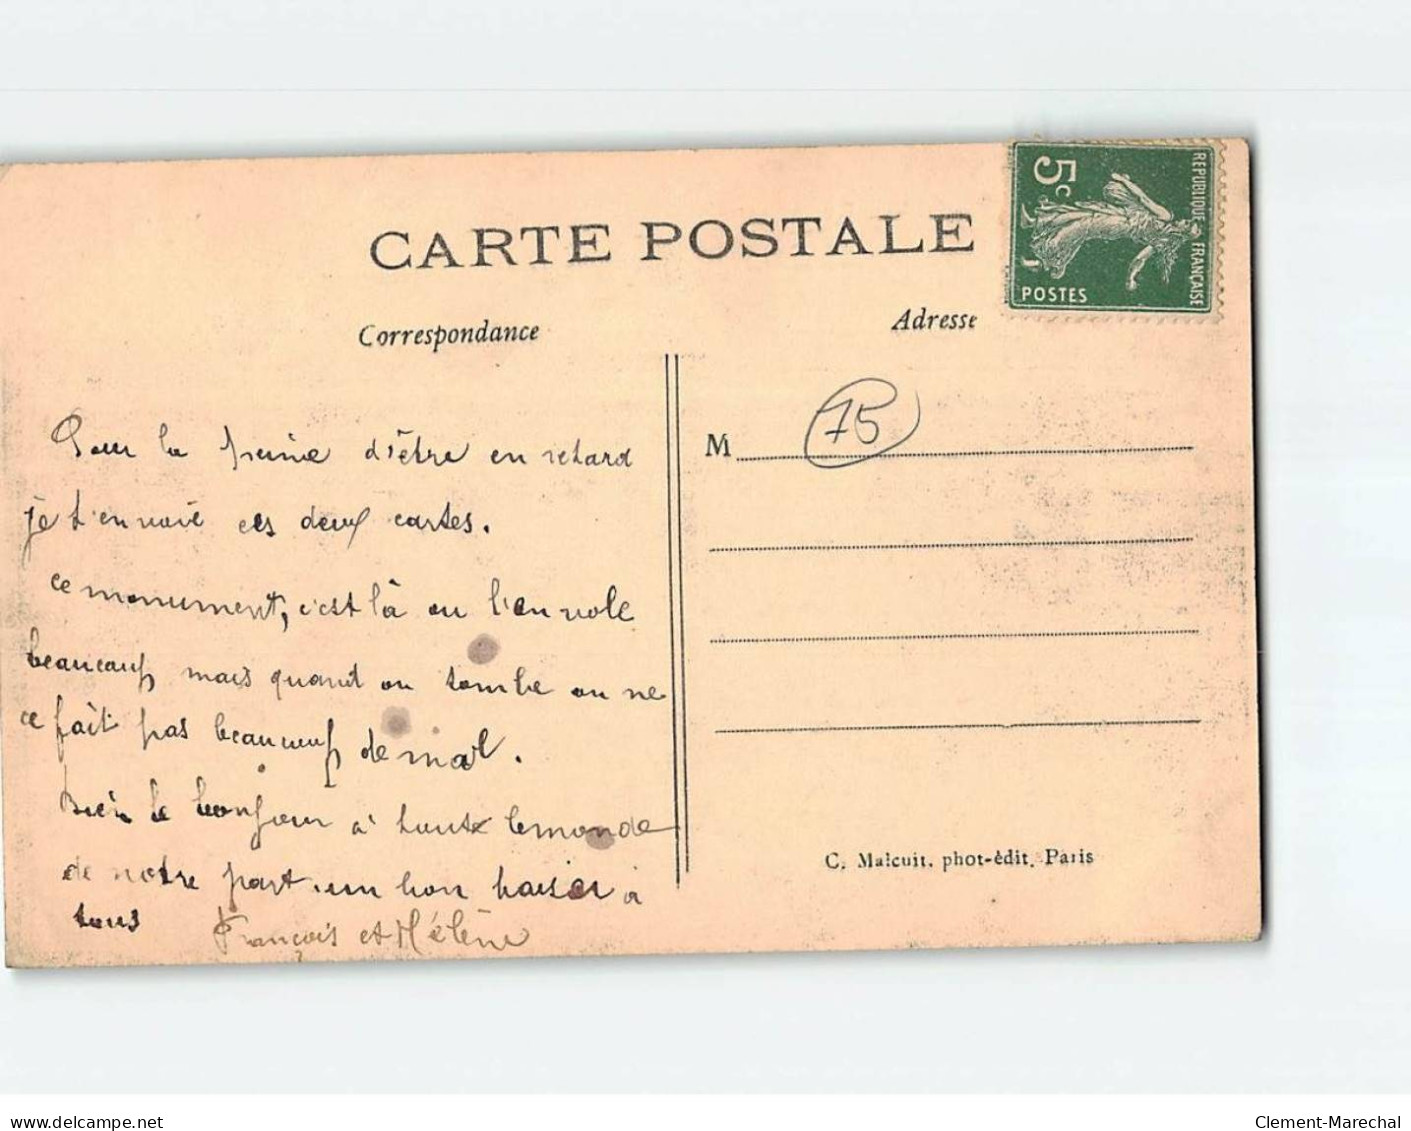 CARTE POSTALE
Correspondance
Adresse
5c
REPUBLIQUE FRANÇAISE
POSTES
75
M
Pour la peine d'être en retard
je t'envoie ces deux cartes.
ce monument, c'est là ou l'on vole
beaucoup mais quant on tombe on ne
ce fait pas beaucoup de mal.
bien le bonjour à tout le monde
de notre part. un bon baiser à
tous
François et Hélène
C. Malcuit. phot-èdit. Paris
www.delcampe.net
Clement-Marechal